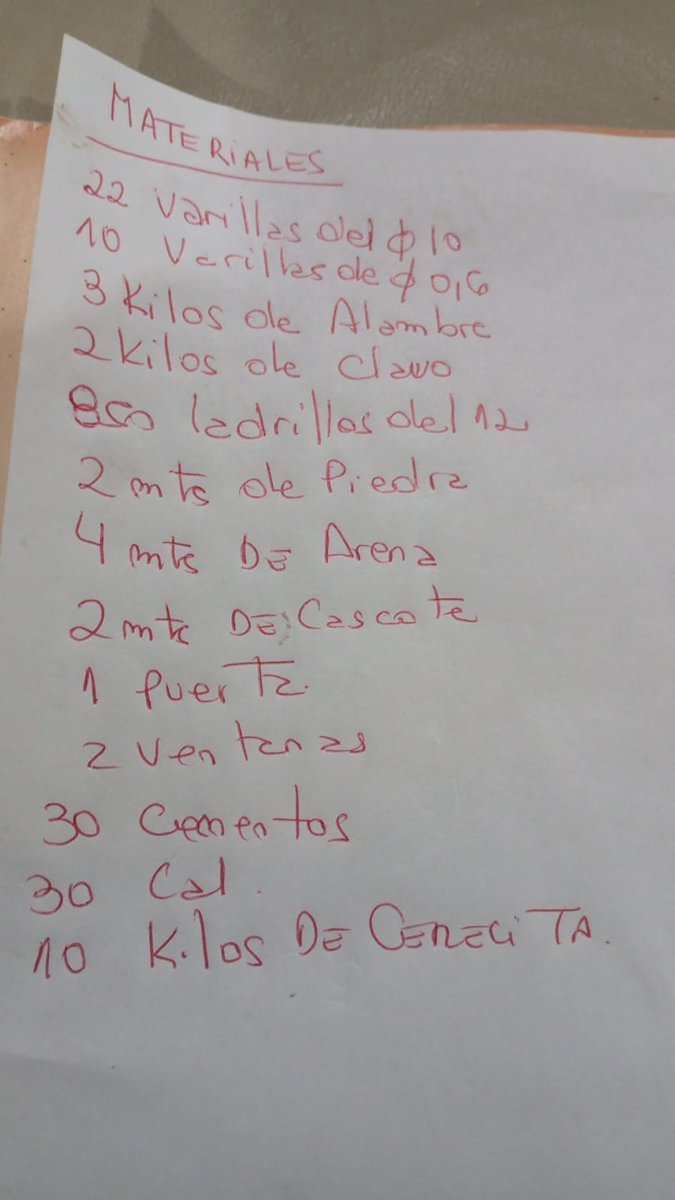 MATERIALES
22 Varillas del ϕ 10
10 Varillas de ϕ 0,6
3 Kilos de Alambre
2 Kilos de Clavo
850 ladrillos del 12
2 mts de Piedra
4 mts DE Arena
2 mts DE Cascote
1 puerta.
2 Ventanas
30 Cementos
30 Cal.
10 Kilos DE CERECiTA.